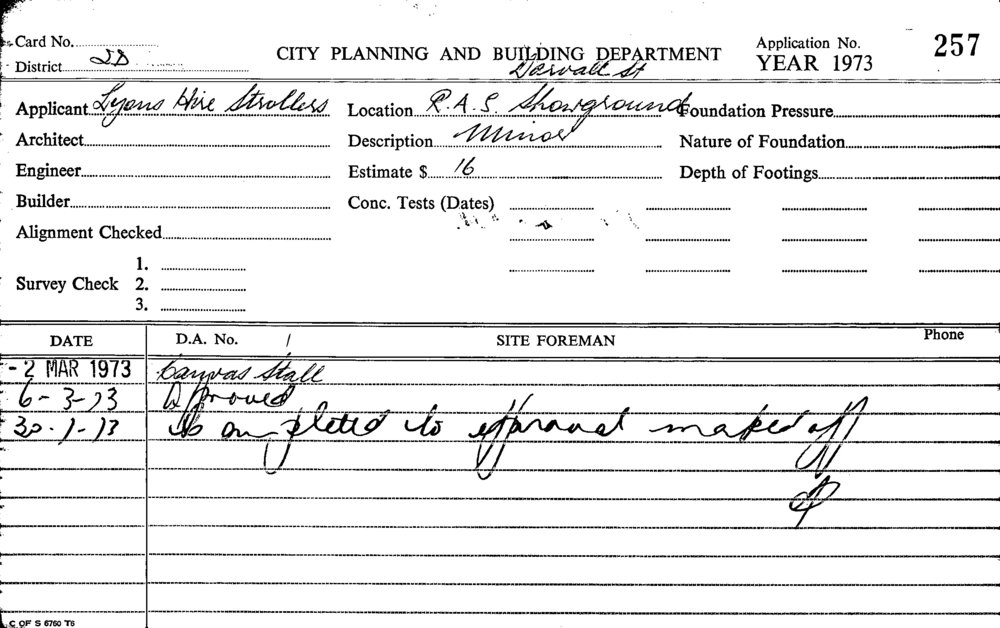 Card No.
CITY PLANNING AND BUILDING DEPARTMENT
Application No. 257
District 2D
Darvall St
YEAR 1973
Applicant Lyons Hire Strollers Location R.A.S. Showground Foundation Pressure
Architect Description Minor Nature of Foundation
Engineer Estimate $ 16 Depth of Footings
Builder Conc. Tests (Dates)
Alignment Checked
1.
Survey Check 2.
3.
DATE D.A. No. / SITE FOREMAN Phone
- 2 MAR 1973 Canvas Stall
6-3-73 Approved
completed to approval marked off
C OF S 6760 T6